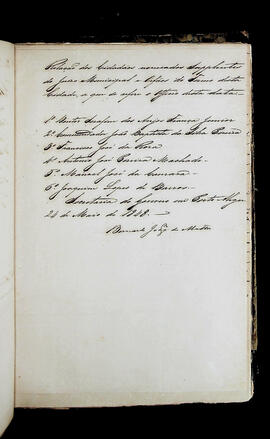 Relação dos Cidadãos nomeados Supplentes
do Juizo Municipal e Orfãos do Termo desta
Cidade, a que se refere o Officio desta data.
1º Bento José dos Anjos França Junior
2º Commendador João Baptista da Silva Pereira
3º Francisco José da Roza
4º Antonio José Pereira Machado
5º Manoel José da Camara
6º Joaquim Lopes de Barros
Secretaria do Governo em Porto Alegre
24 de Maio de 1848.
Bernardo de Mattos